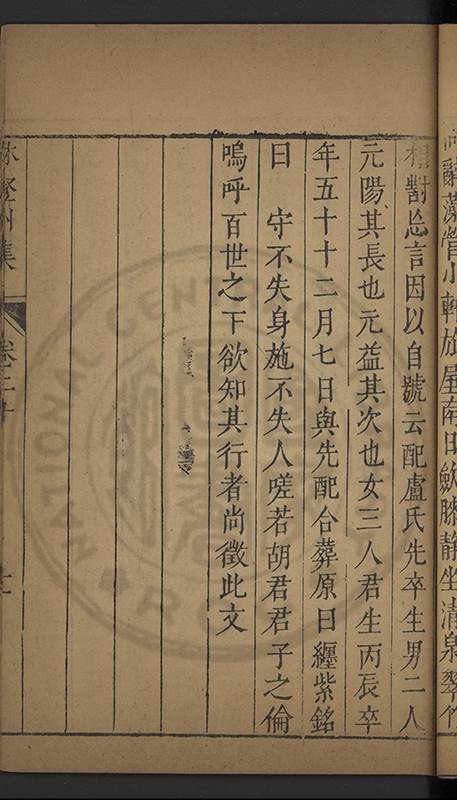 辭藻營小軒於屋南日歛膝靜坐清泉翠竹
相對忘言因以自號云配盧氏先卒生男二人
元陽其長也元益其次也女三人君生丙辰卒
年五十十二月七日與先配合葬原曰纏紫銘
曰　守不失身施不失人嗟若胡君君子之倫
嗚呼百世之下欲知其行者尚徵此文
林登州集
卷二十